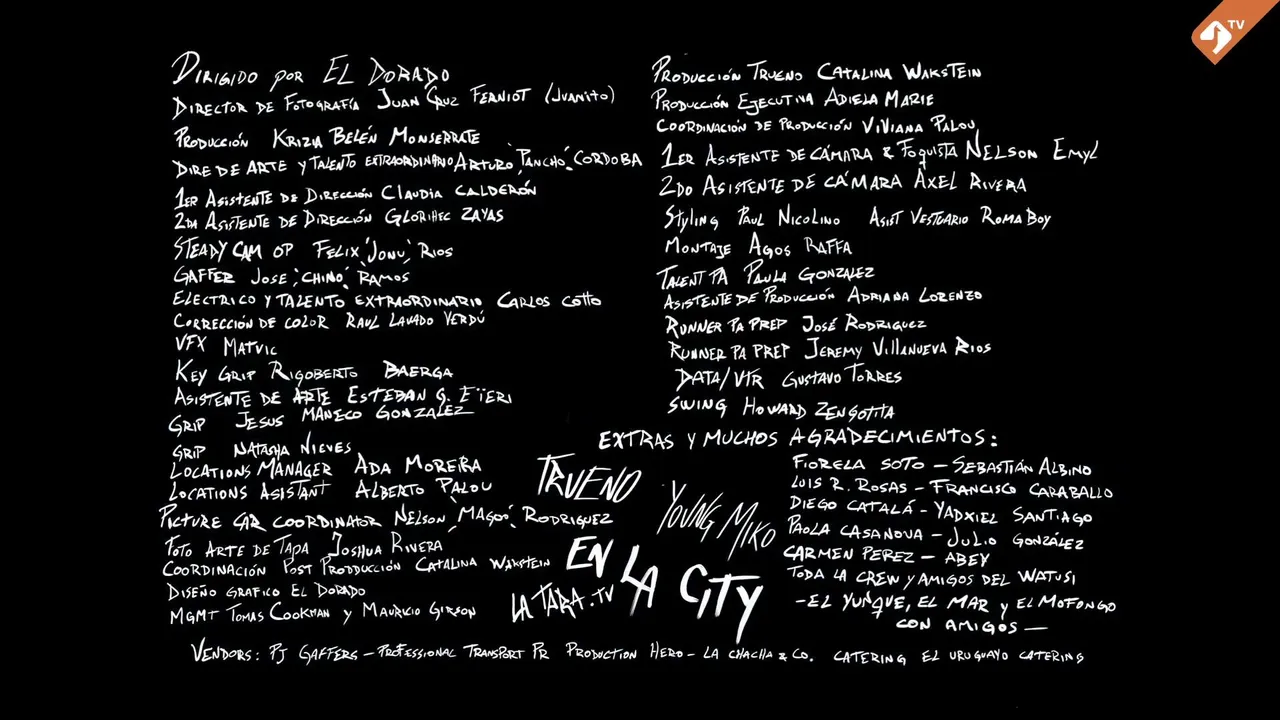 TV
DIRIGIDO POR EL DORADO
DIRECTOR DE FOTOGRAFÍA JUAN CRUZ FERNIOT (JUANITO)
PRODUCCIÓN KRIZIA BELÉN MONSERRATE
DIRE DE ARTE Y TALENTO EXTRAORDINARIO ARTURO, 'PANCHO', CORDOBA
1ER ASISTENTE DE DIRECCIÓN CLAUDIA CALDERÓN
2DA ASISTENTE DE DIRECCIÓN GLORIHEC ZAYAS
STEADY CAM OP FELIX 'JONU' RIOS
GAFFER JOSE 'CHINO' RAMOS
ELECTRICO Y TALENTO EXTRAORDINARIO CARLOS COTTO
CORRECCIÓN DE COLOR RAUL LAVADO VERDÚ
VFX MATVIC
KEY GRIP RIGOBERTO BAERGA
ASISTENTE DE ARTE ESTEBAN G.
GRIP JESUS MANECO GONZALEZ
GRIP NATASHA NIEVES
LOCATIONS MANAGER ADA MOREIRA
LOCATIONS ASISTANT ALBERTO PALOU
PICTURE CAR COORDINATOR NELSON 'MAGOO' RODRIGUEZ
FOTO ARTE DE TAPA JOSHUA RIVERA
COORDINACIÓN POST PRODUCCIÓN CATALINA WAKSTEIN
DISEÑO GRAFICO EL DORADO
MGMT TOMAS COOKMAN Y MAURICIO GIRSON
PRODUCCIÓN TRUENO CATALINA WAKSTEIN
PRODUCCIÓN EJECUTIVA ADIELA MARIE
COORDINACIÓN DE PRODUCCIÓN VIVIANA PALOU
1ER ASISTENTE DE CÁMARA & FOQUISTA NELSON EMYL
2DO ASISTENTE DE CÁMARA AXEL RIVERA
STYLING PAUL NICOLINO ASIST VESTUARIO ROMA BOY
MONTAJE AGOS RAFFA
TALENT PA PAULA GONZALEZ
ASISTENTE DE PRODUCCIÓN ADRIANA LORENZO
RUNNER PA PREP JOSÉ RODRIGUEZ
RUNNER PA PREP JEREMY VILLANUEVA RIOS
DATA/VTR GUSTAVO TORRES
SWING HOWARD ZENGOTITA
EXTRAS Y MUCHOS AGRADECIMIENTOS:
FIORELA SOTO – SEBASTIÁN ALBINO
LUIS R. ROSAS – FRANCISCO CARABALLO
DIEGO CATALÁ – YADXIEL SANTIAGO
PAOLA CASANOVA – JULIO GONZÁLEZ
CARMEN PEREZ – ABEY
TODA LA CREW Y AMIGOS DEL WATUSI
– EL YUNQUE, EL MAR Y EL MOFONGO
CON AMIGOS –
TRUENO
YOUNG MIKO
EN LA CITY
LATARA.TV
VENDORS: PJ GAFFERS – PROFESSIONAL TRANSPORT PR PRODUCTION HERO – LA CHACHA & CO. CATERING EL URUGUAYO CATERING